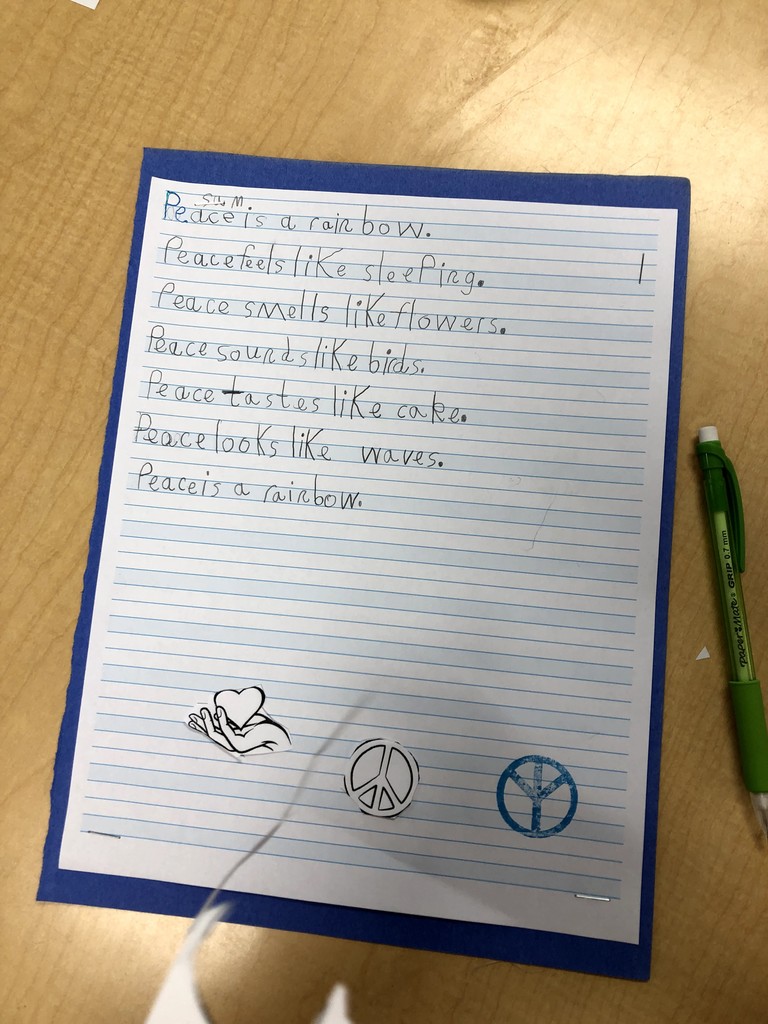 Peace is a rainbow.
Peace feels like sleeping.
Peace smells like flowers.
Peace sounds like birds.
Peace tastes like cake.
Peace looks like waves.
Peace is a rainbow.
Paper Mate GRIP 0.7 mm